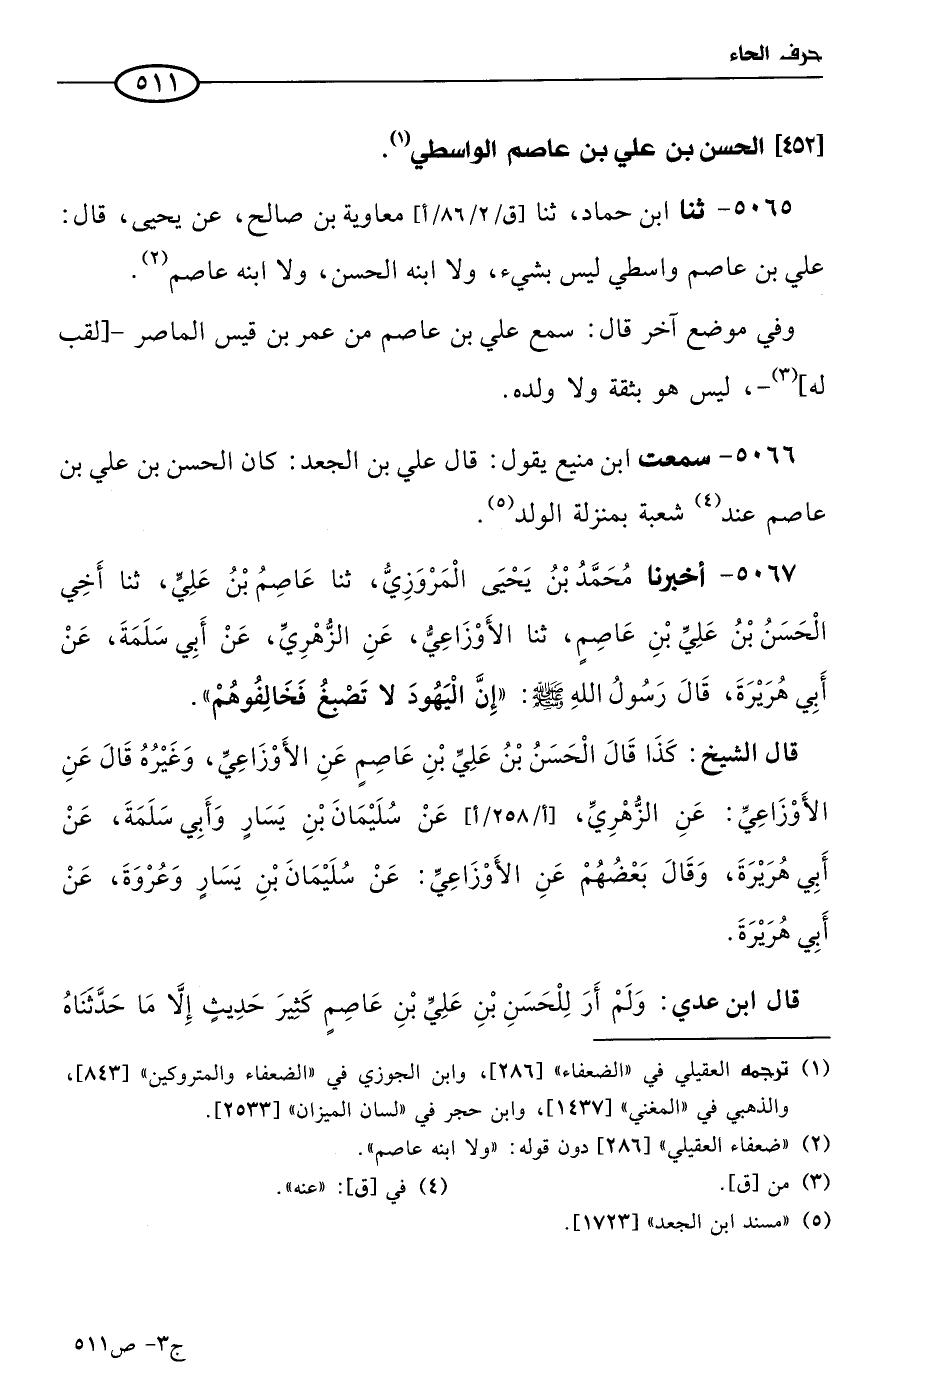 حرف الحاء
٥١١
[٤٥٢] الحسن بن علي بن عاصم الواسطي(١).
٥٠٦٥- ثنا ابن حماد، ثنا [ق/٨٦/٢/أ] معاوية بن صالح، عن يحيى، قال:
علي بن عاصم واسطي ليس بشيء، ولا ابنه الحسن، ولا ابنه عاصم(٢).
وفي موضع آخر قال: سمع علي بن عاصم من عمر بن قيس الماصر -[لقب
له](٣)-، ليس هو بثقة ولا ولده.
٥٠٦٦- سمعت ابن منيع يقول: قال علي بن الجعد: كان الحسن بن علي بن
عاصم عند(٤) شعبة بمنزلة الولد(٥).
٥٠٦٧- أخبرنا مُحَمَّدُ بْنُ يَحْيَى الْمَرْوَزِيُّ، ثنا عَاصِمُ بْنُ عَلِيٍّ، ثنا أَخِي
الْحَسَنُ بْنُ عَلِيِّ بْنِ عَاصِمٍ، ثنا الأَوْزَاعِيُّ، عَنِ الزُّهْرِيِّ، عَنْ أَبِي سَلَمَةَ، عَنْ
أَبِي هُرَيْرَةَ، قَالَ رَسُولُ اللهِ ﷺ: «إِنَّ الْيَهُودَ لا تَصْبِغُ فَخَالِفُوهُمْ».
قال الشيخ: كَذَا قَالَ الْحَسَنُ بْنُ عَلِيِّ بْنِ عَاصِمٍ عَنِ الأَوْزَاعِيِّ، وَغَيْرُهُ قَالَ عَنِ
الأَوْزَاعِيِّ: عَنِ الزُّهْرِيِّ، [أ/٢٥٨/أ] عَنْ سُلَيْمَانَ بْنِ يَسَارٍ وَأَبِي سَلَمَةَ، عَنْ
أَبِي هُرَيْرَةَ، وَقَالَ بَعْضُهُمْ عَنِ الأَوْزَاعِيِّ: عَنْ سُلَيْمَانَ بْنِ يَسَارٍ وَعُرْوَةَ، عَنْ
أَبِي هُرَيْرَةَ.
قال ابن عدي: وَلَمْ أَرَ لِلْحَسَنِ بْنِ عَلِيِّ بْنِ عَاصِمٍ كَثِيرَ حَدِيثٍ إِلَّا مَا حَدَّثَنَاهُ
(١) ترجمه العقيلي في «الضعفاء» [٢٨٦]، وابن الجوزي في «الضعفاء والمتروكين» [٨٤٣]،
والذهبي في «المغني» [١٤٣٧]، وابن حجر في «لسان الميزان» [٢٥٣٣].
(٢) «ضعفاء العقيلي» [٢٨٦] دون قوله: «ولا ابنه عاصم».
(٣) من [ق]. (٤) في [ق]: «عنه».
(٥) «مسند ابن الجعد» [١٧٢٣].
ج٣- ص٥١١